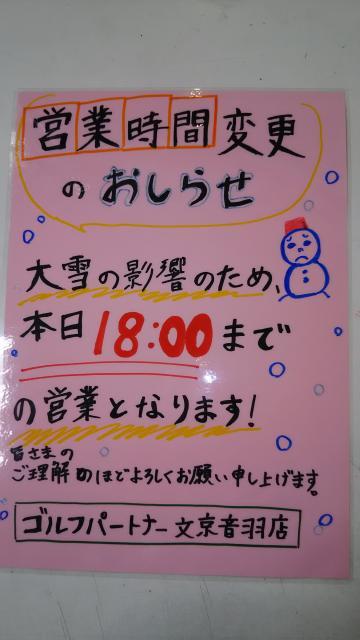 営業時間変更
のおしらせ
大雪の影響のため、
本日18:00まで
の営業となります!
皆さまの
ご理解のほどよろしくお願い申し上げます。
ゴルフパートナー文京音羽店